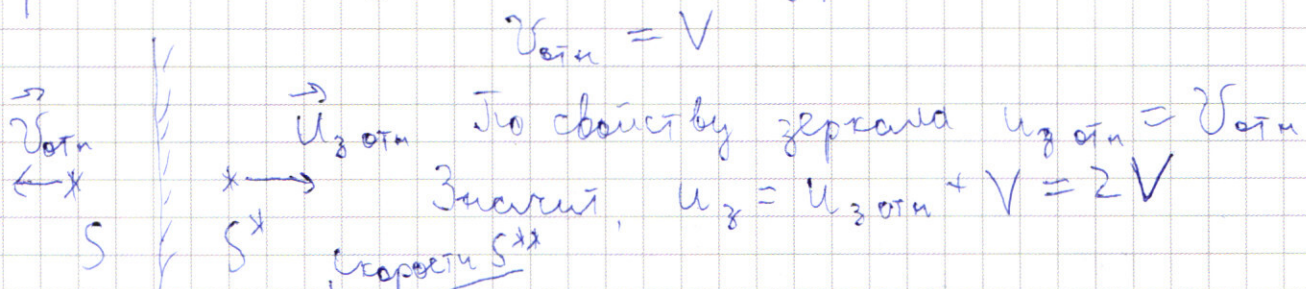 Vотн = V
Vотн Uз отн По свойству зеркала uз отн = Vотн
Значит, uз = uз отн + V = 2V
S S*
скорости S**